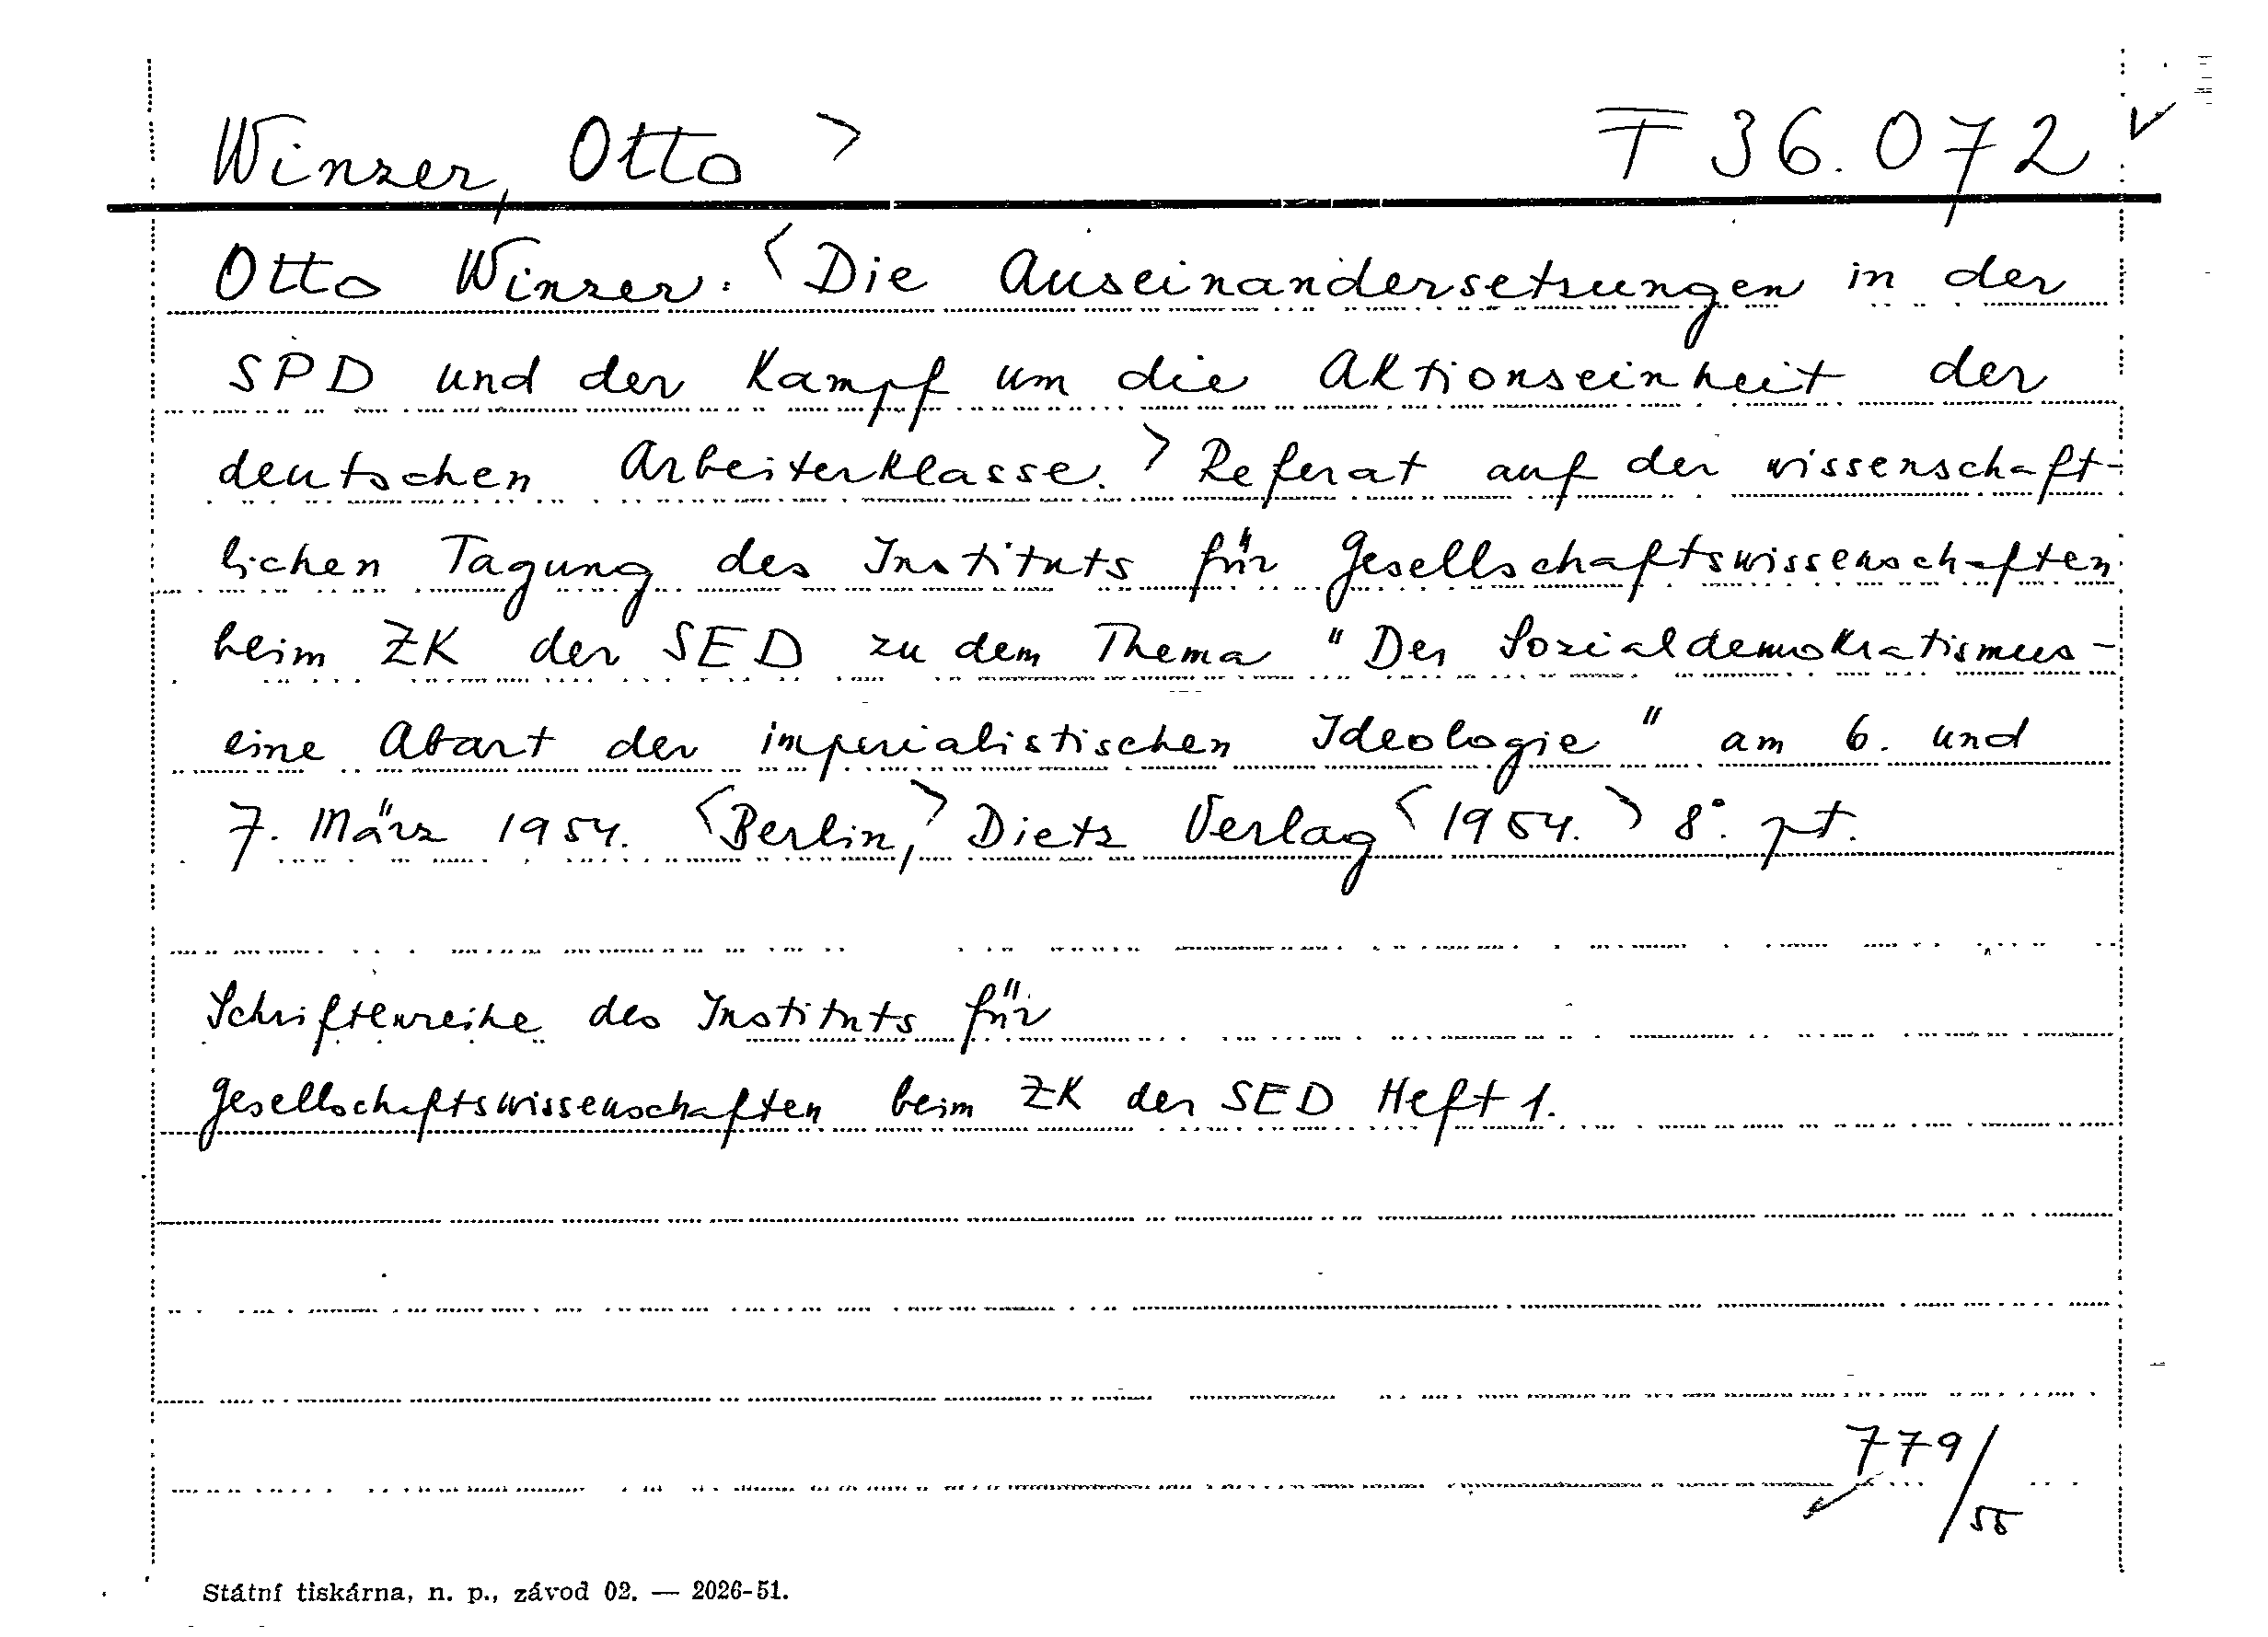 Winzer, Otto > F 36.072 ✓
Otto Winzer: <Die Auseinandersetzungen in der
SPD und der Kampf um die Aktionseinheit der
deutschen Arbeiterklasse.> Referat auf der wissenschaft-
lichen Tagung des Instituts für Gesellschaftswissenschaften
beim ZK der SED zu dem Thema "Der Sozialdemokratismus -
eine Abart der imperialistischen Ideologie" am 6. und
7. März 1954. <Berlin,> Dietz Verlag <1954.> 8°. pt.
Schriftenreihe des Instituts für
Gesellschaftswissenschaften beim ZK der SED Heft 1.
779/55
Státní tiskárna, n. p., závod 02. — 2026-51.